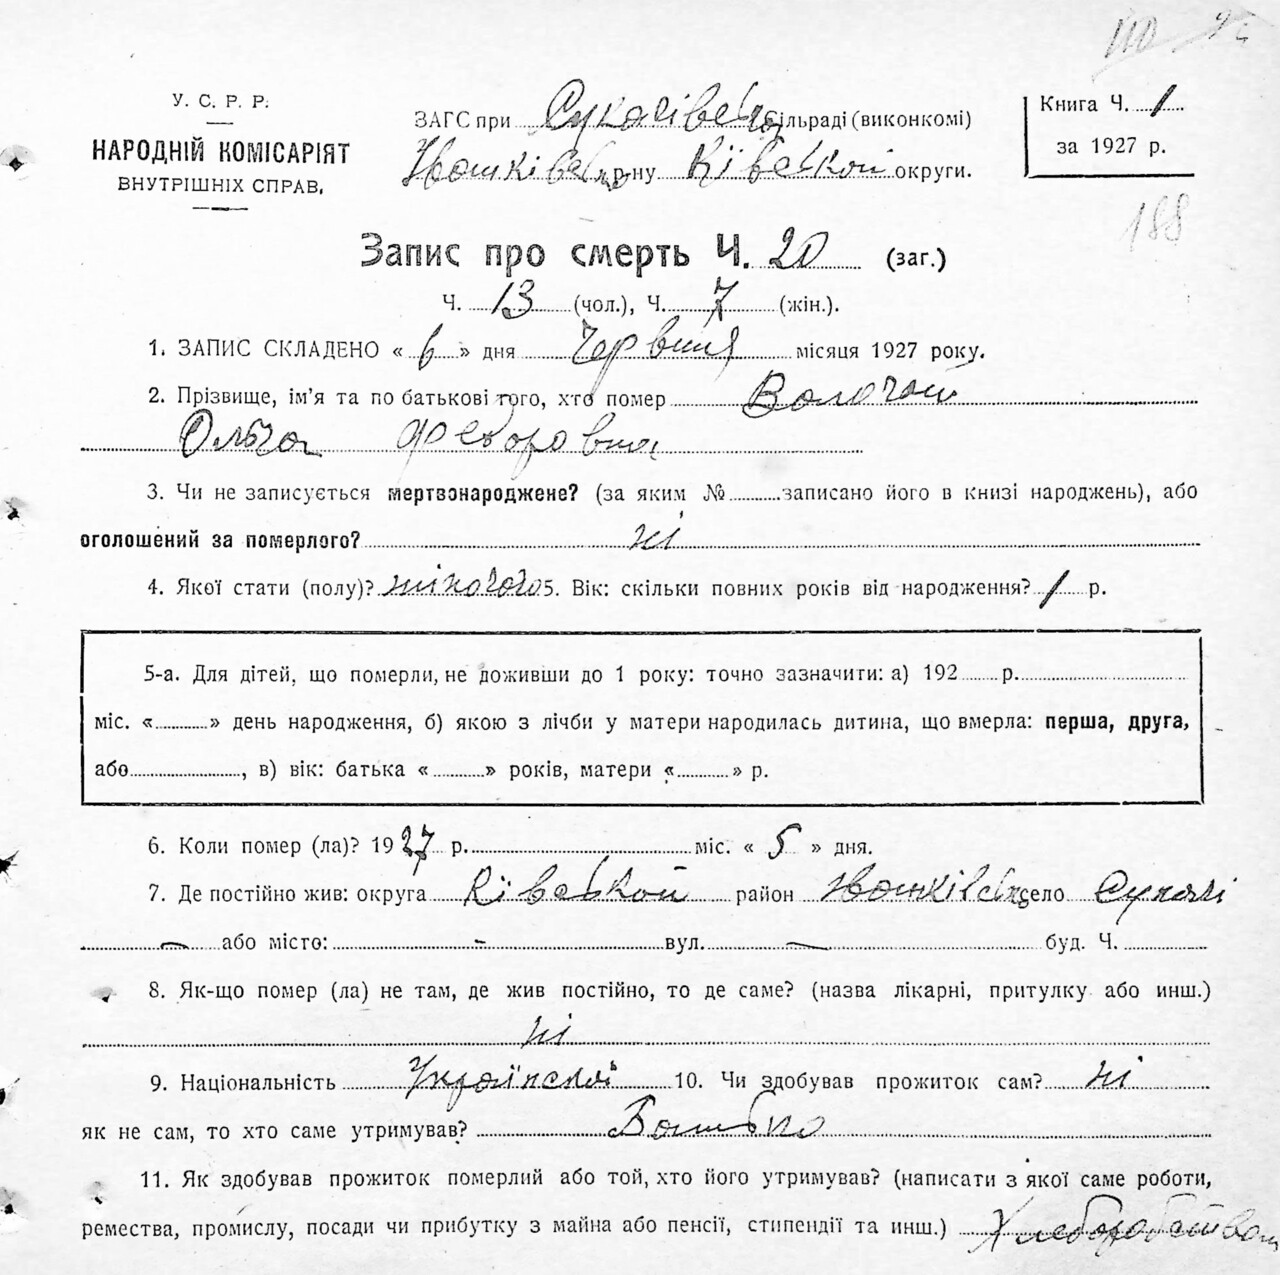 У. С. Р. Р.
НАРОДНІЙ КОМІСАРІЯТ
ВНУТРІШНІХ СПРАВ,
ЗАГС при Сукачівській сільраді (виконкомі)
р-ну Київської округи.
Книга Ч. 1
за 1927 р.
188
Запис про смерть Ч. 20 (заг.)
Ч. 13 (чол.), Ч. 7 (жін.).
1. ЗАПИС СКЛАДЕНО « 6 » дня Червня місяця 1927 року.
2. Прізвище, ім'я та по батькові того, хто помер Волочай
Ольга Федоровна
3. Чи не записується мертвонароджене? (за яким № записано його в книзі народжень), або
оголошений за померлого? ні
4. Якої стати (полу)? жіночого 5. Вік: скільки повних років від народження? 1 р.
5-а. Для дітей, що померли, не доживши до 1 року: точно зазначити: а) 192 р.
міс. « » день народження, б) якою з лічби у матери народилась дитина, що вмерла: перша, друга,
або , в) вік: батька « » років, матери « » р.
6. Коли помер (ла)? 1927 р. міс. « 5 » дня.
7. Де постійно жив: округа Київської район село Сукачі
— або місто: - вул. — буд. Ч.
8. Як-що помер (ла) не там, де жив постійно, то де саме? (назва лікарні, притулку або инш.)
ні
9. Національність 10. Чи здобував прожиток сам? ні
як не сам, то хто саме утримував? Батько
11. Як здобував прожиток померлий або той, хто його утримував? (написати з якої саме роботи,
ремества, промислу, посади чи прибутку з майна або пенсії, стипендії та инш.) Хлеборобством